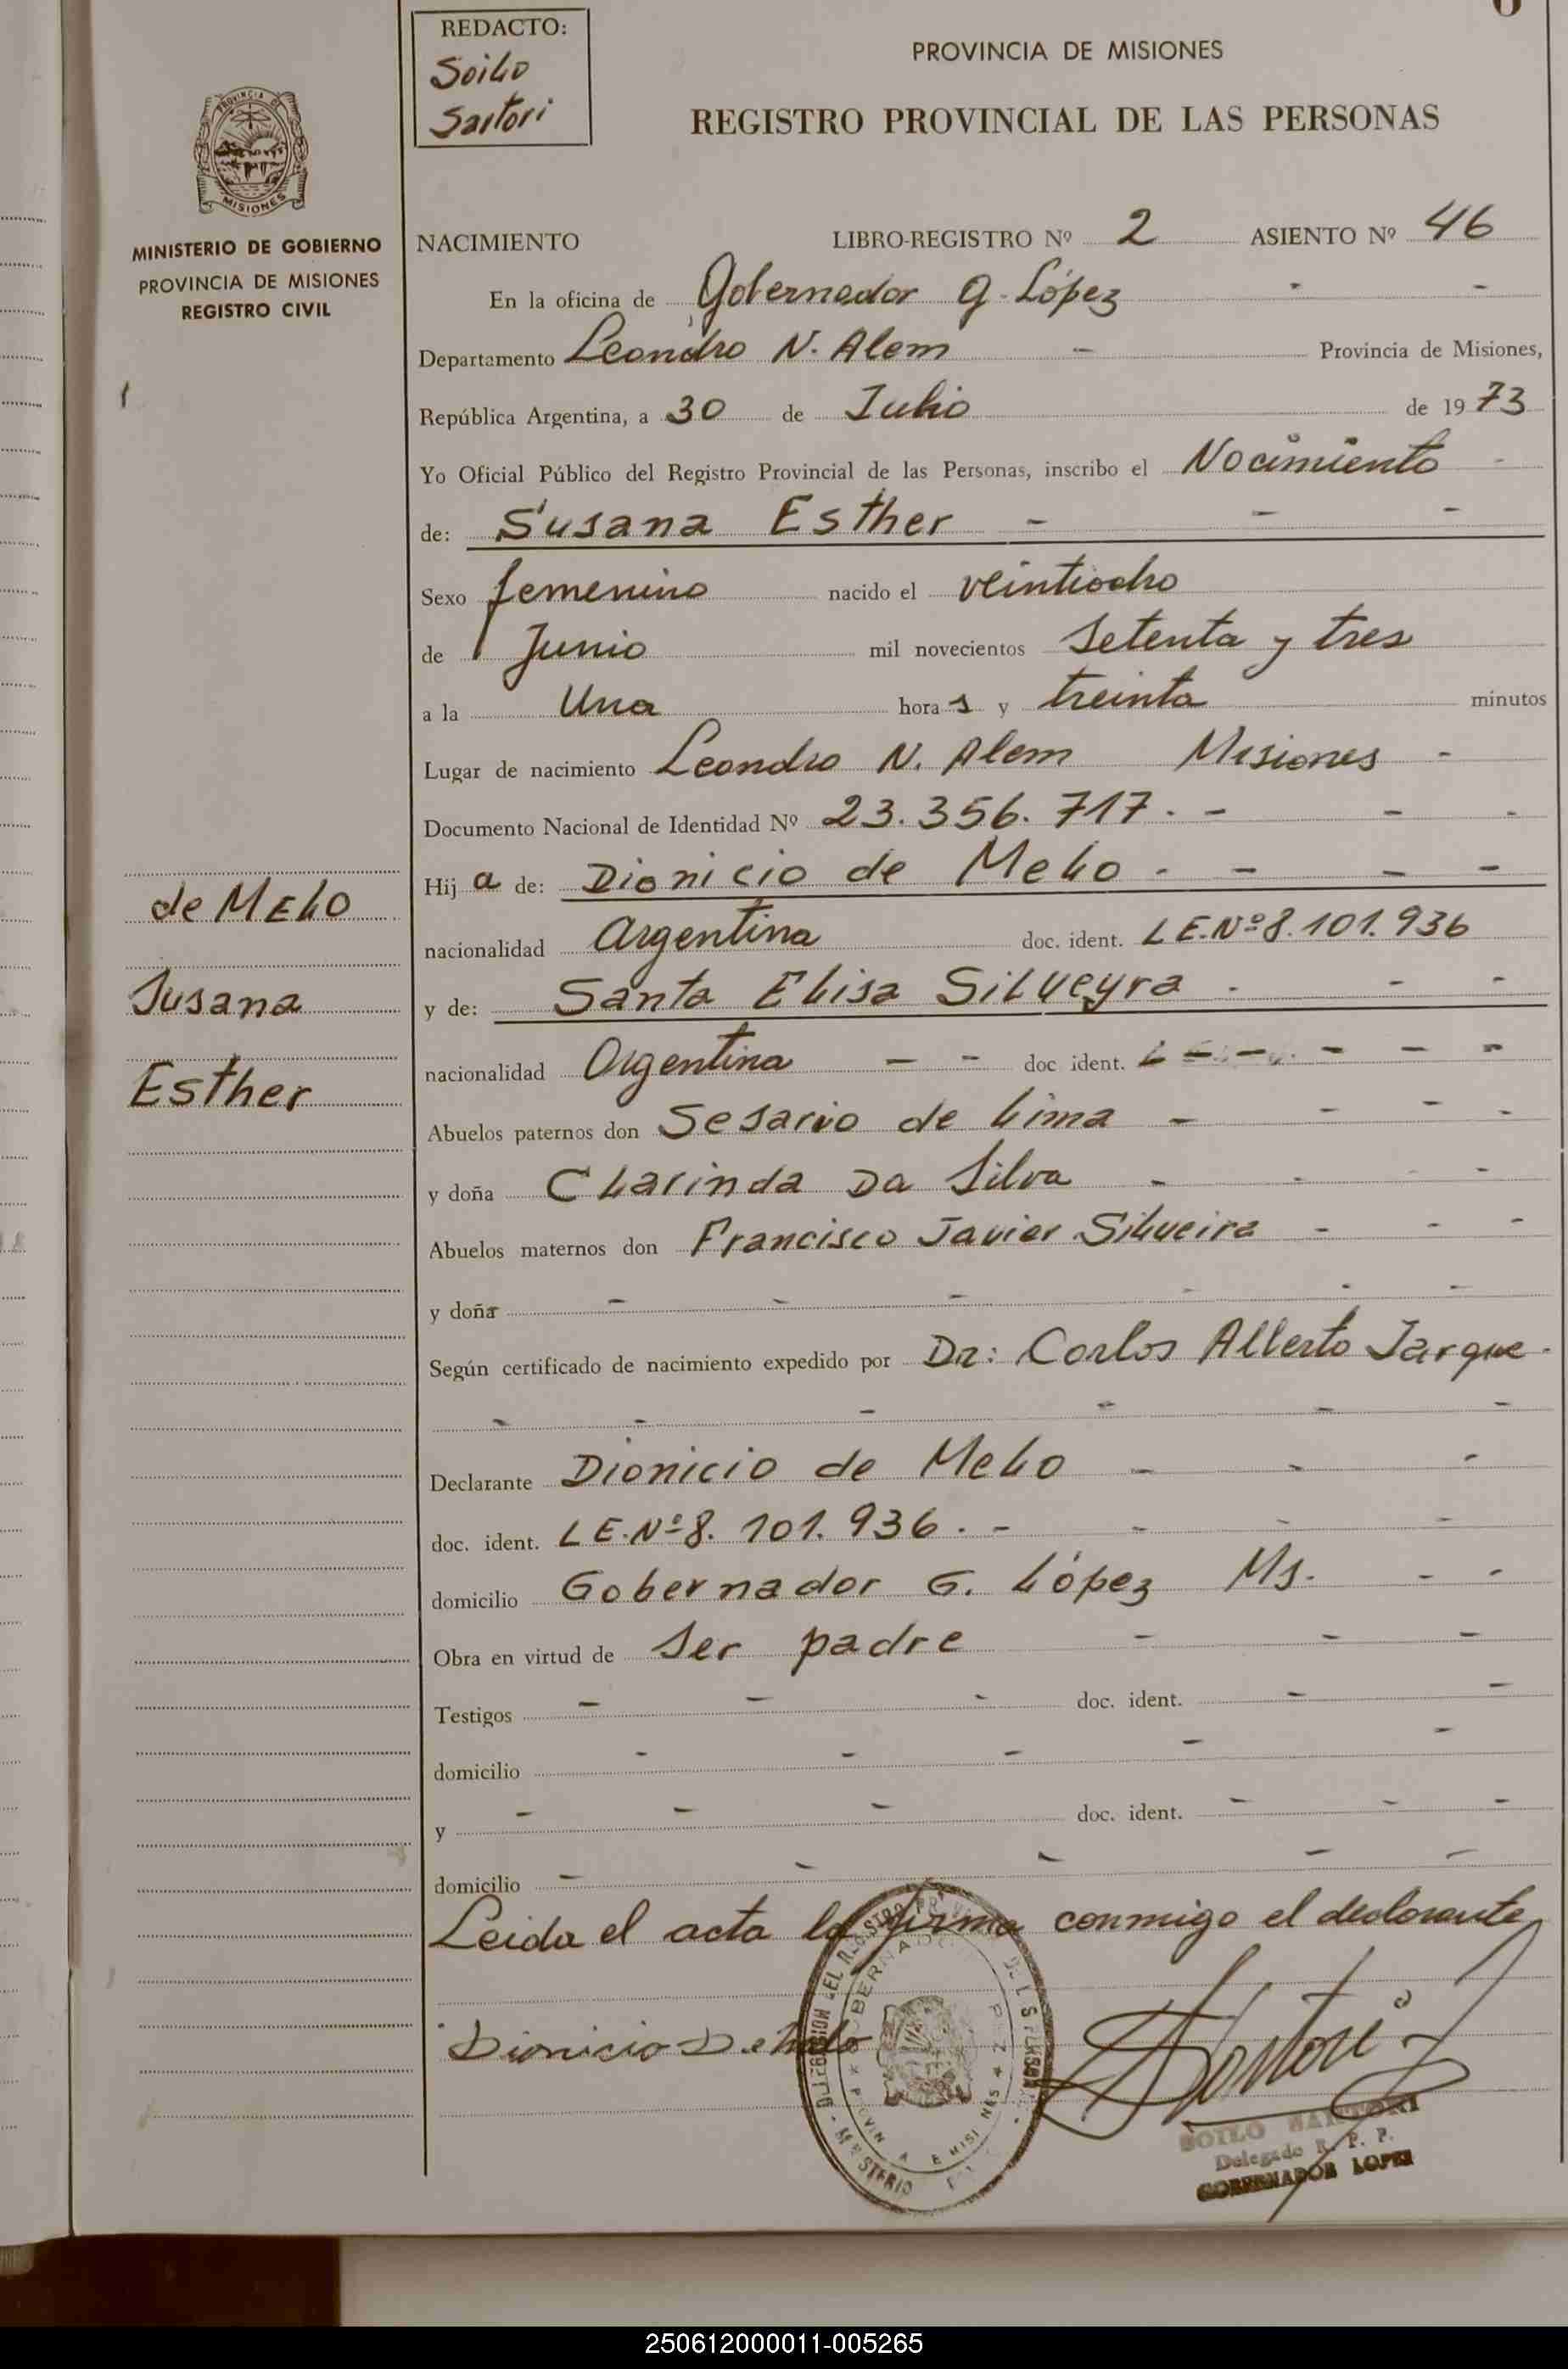 REDACTO:
Soilo
Sartori
PROVINCIA DE MISIONES
REGISTRO PROVINCIAL DE LAS PERSONAS
PROVINCIA DE
MISIONES
MINISTERIO DE GOBIERNO
PROVINCIA DE MISIONES
REGISTRO CIVIL
NACIMIENTO LIBRO-REGISTRO Nº 2 ASIENTO Nº 46
En la oficina de Gobernador G. López - -
Departamento Leandro N. Alem - Provincia de Misiones,
República Argentina, a 30 de Julio de 1973
Yo Oficial Público del Registro Provincial de las Personas, inscribo el Nacimiento -
de: Susana Esther - - -
Sexo femenino nacido el veintiocho
de Junio mil novecientos setenta y tres
a la Una horas y treinta minutos
Lugar de nacimiento Leandro N. Alem Misiones -
Documento Nacional de Identidad Nº 23.356.717. - - -
Hija de: Dionicio de Melo - - - -
nacionalidad Argentina doc. ident. LE.Nº 8.101.936
y de: Santa Elisa Silveyra - - -
nacionalidad Argentina - - doc ident. - - - -
Abuelos paternos don Sesario de Lima - - - -
y doña Clarinda Da Silva - - -
Abuelos maternos don Francisco Javier Silveira - - -
y doña - - - - - -
Según certificado de nacimiento expedido por Dr: Carlos Alberto Jarque -
- - - - - -
Declarante Dionicio de Melo - - -
doc. ident. LE.Nº 8.101.936. - - - -
domicilio Gobernador G. López Ms. - -
Obra en virtud de ser padre - - -
Testigos - - - doc. ident. - -
domicilio - - - - -
y - - - doc. ident. - - -
domicilio - - - - -
Leida el acta la firma conmigo el declarante
de MELO
Susana
Esther
Dionicio De Melo
Sartori
SOILO SARTORI
Delegado R. P. P.
GOBERNADOR LOPEZ
250612000011-005265